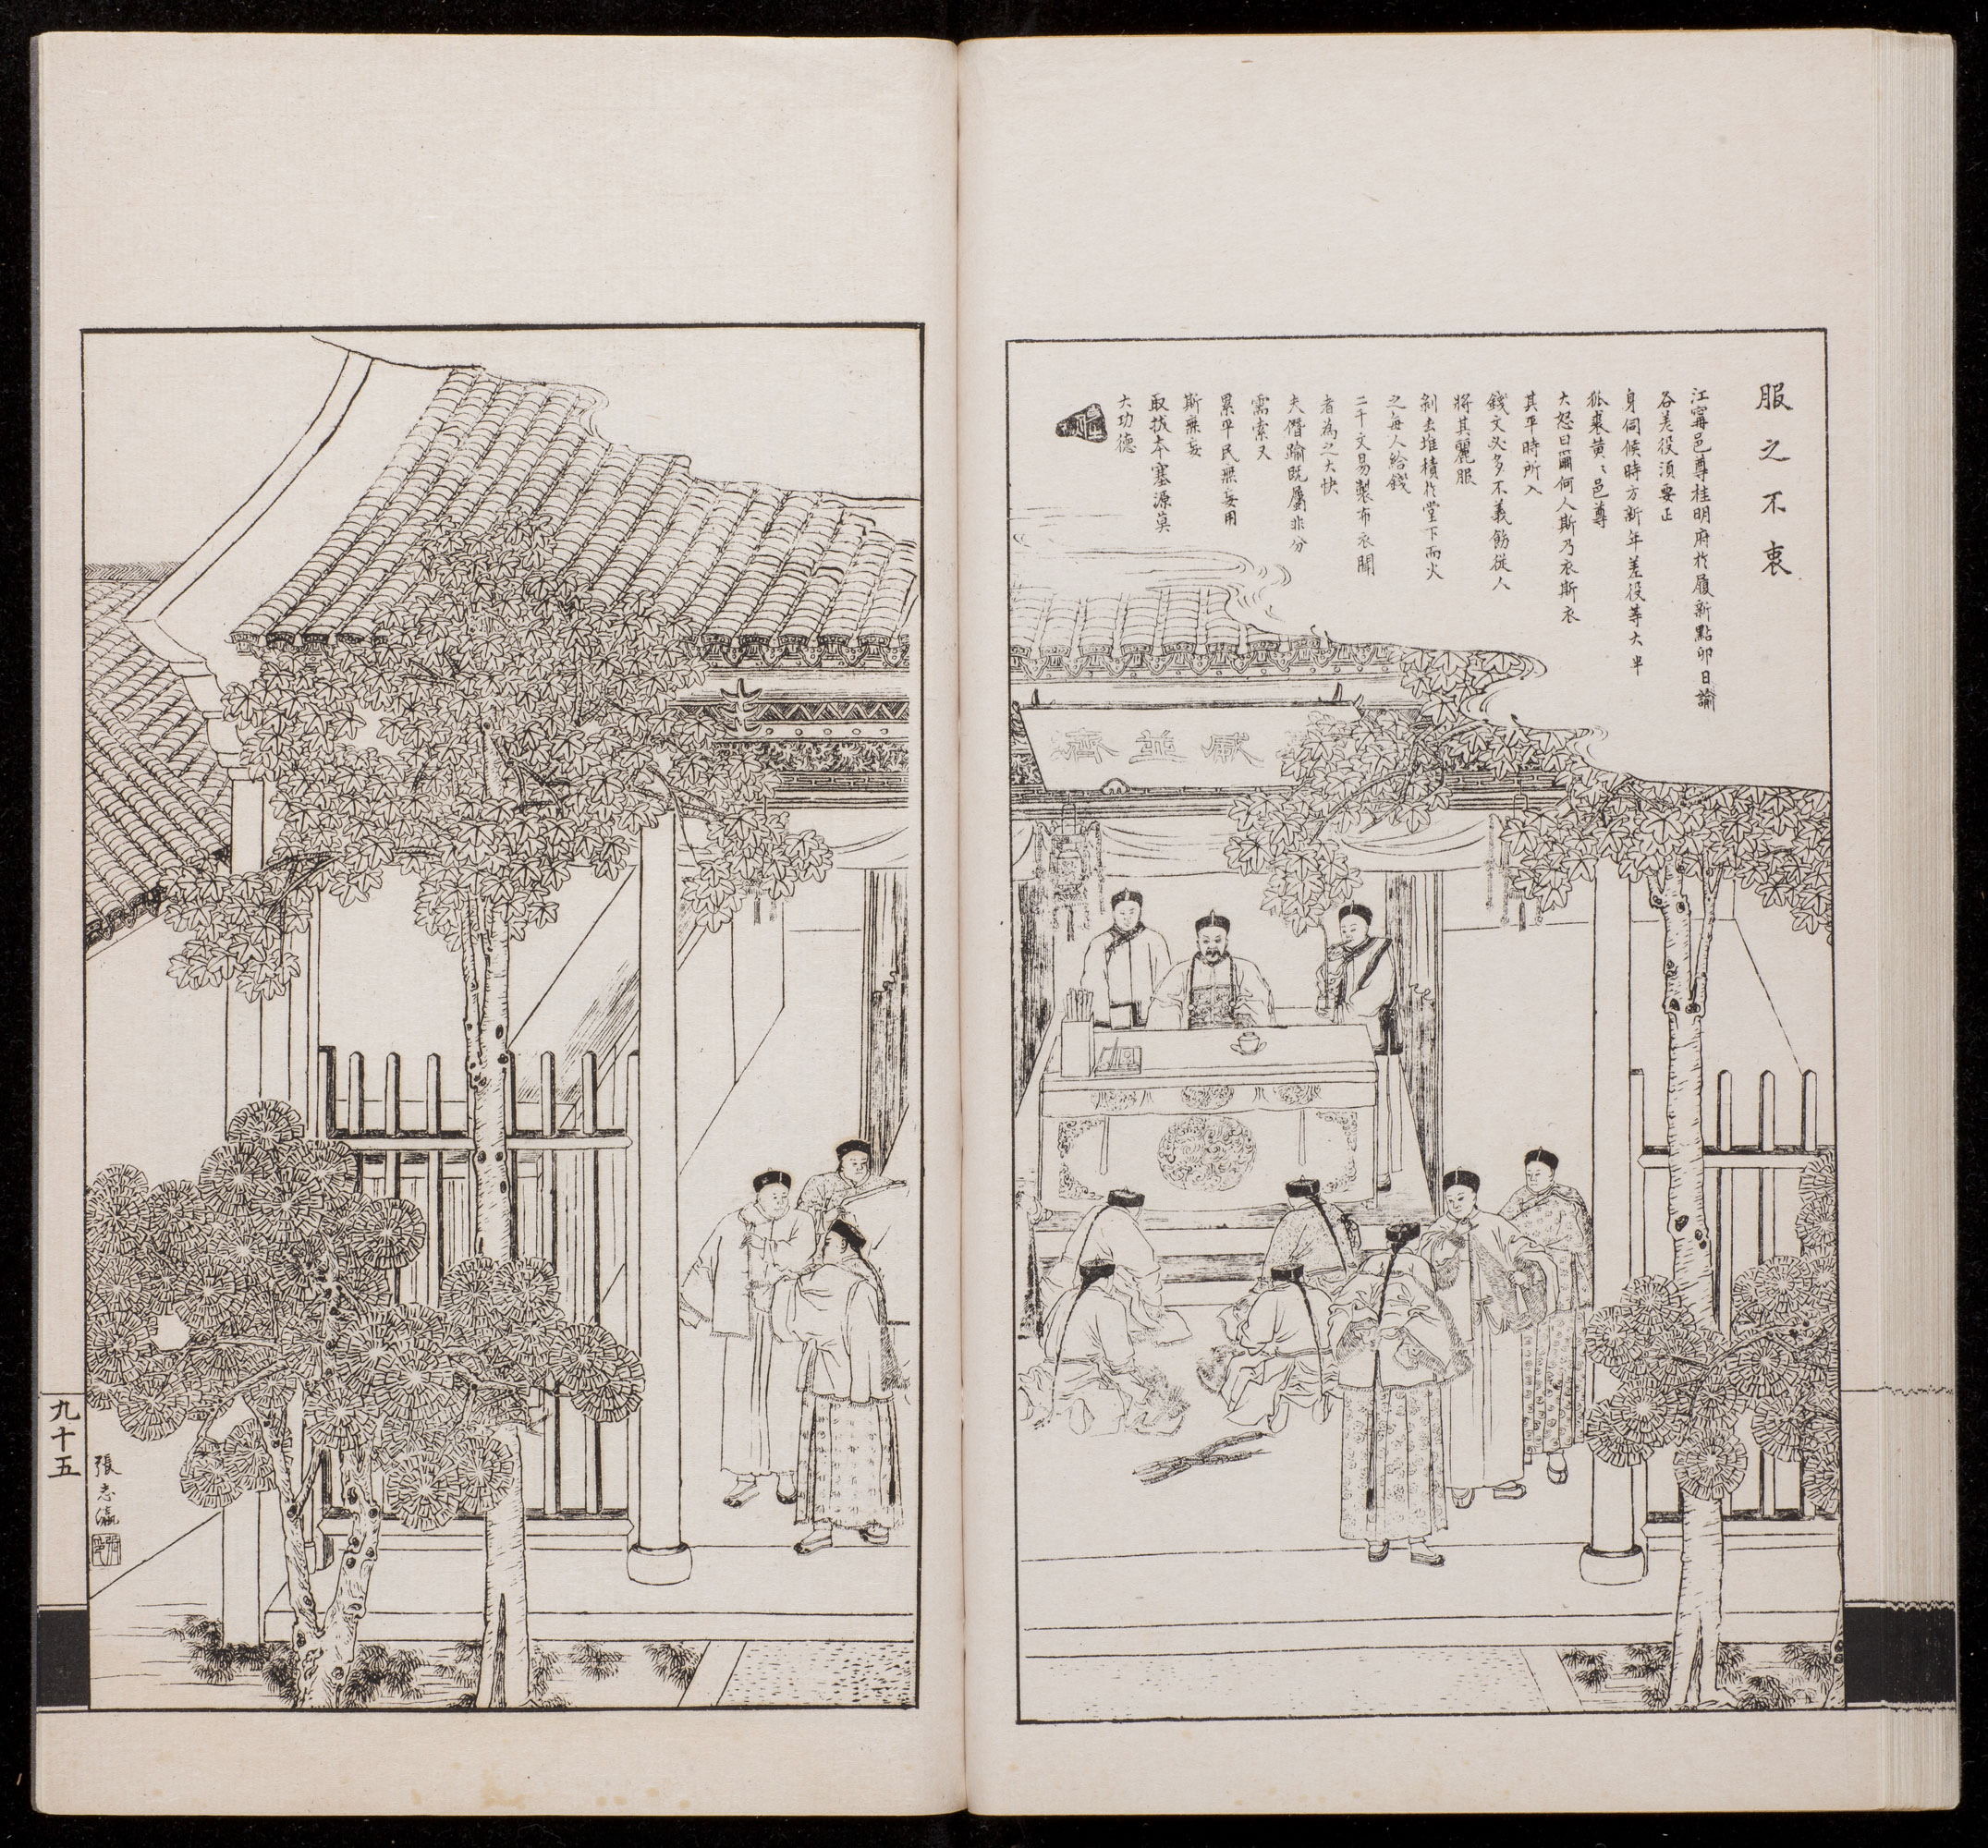 服之不衷
江寧邑尊桂明府於履新點卯日諭
各差役須要正
身伺候時方新年差役等大半
狐裘黄〻邑尊
大怒曰爾何人斯乃衣斯衣
其平時所入
錢文必多不義飭從人
將其麗服
剝去堆積於堂下而火
之每人給錢
二千文易製布衣聞
者為之大快
夫僭踰既屬非分
需索又
累平民無妄用
斯無妄
取拔本塞源莫
大功德
威並濟
九十五
張志瀛